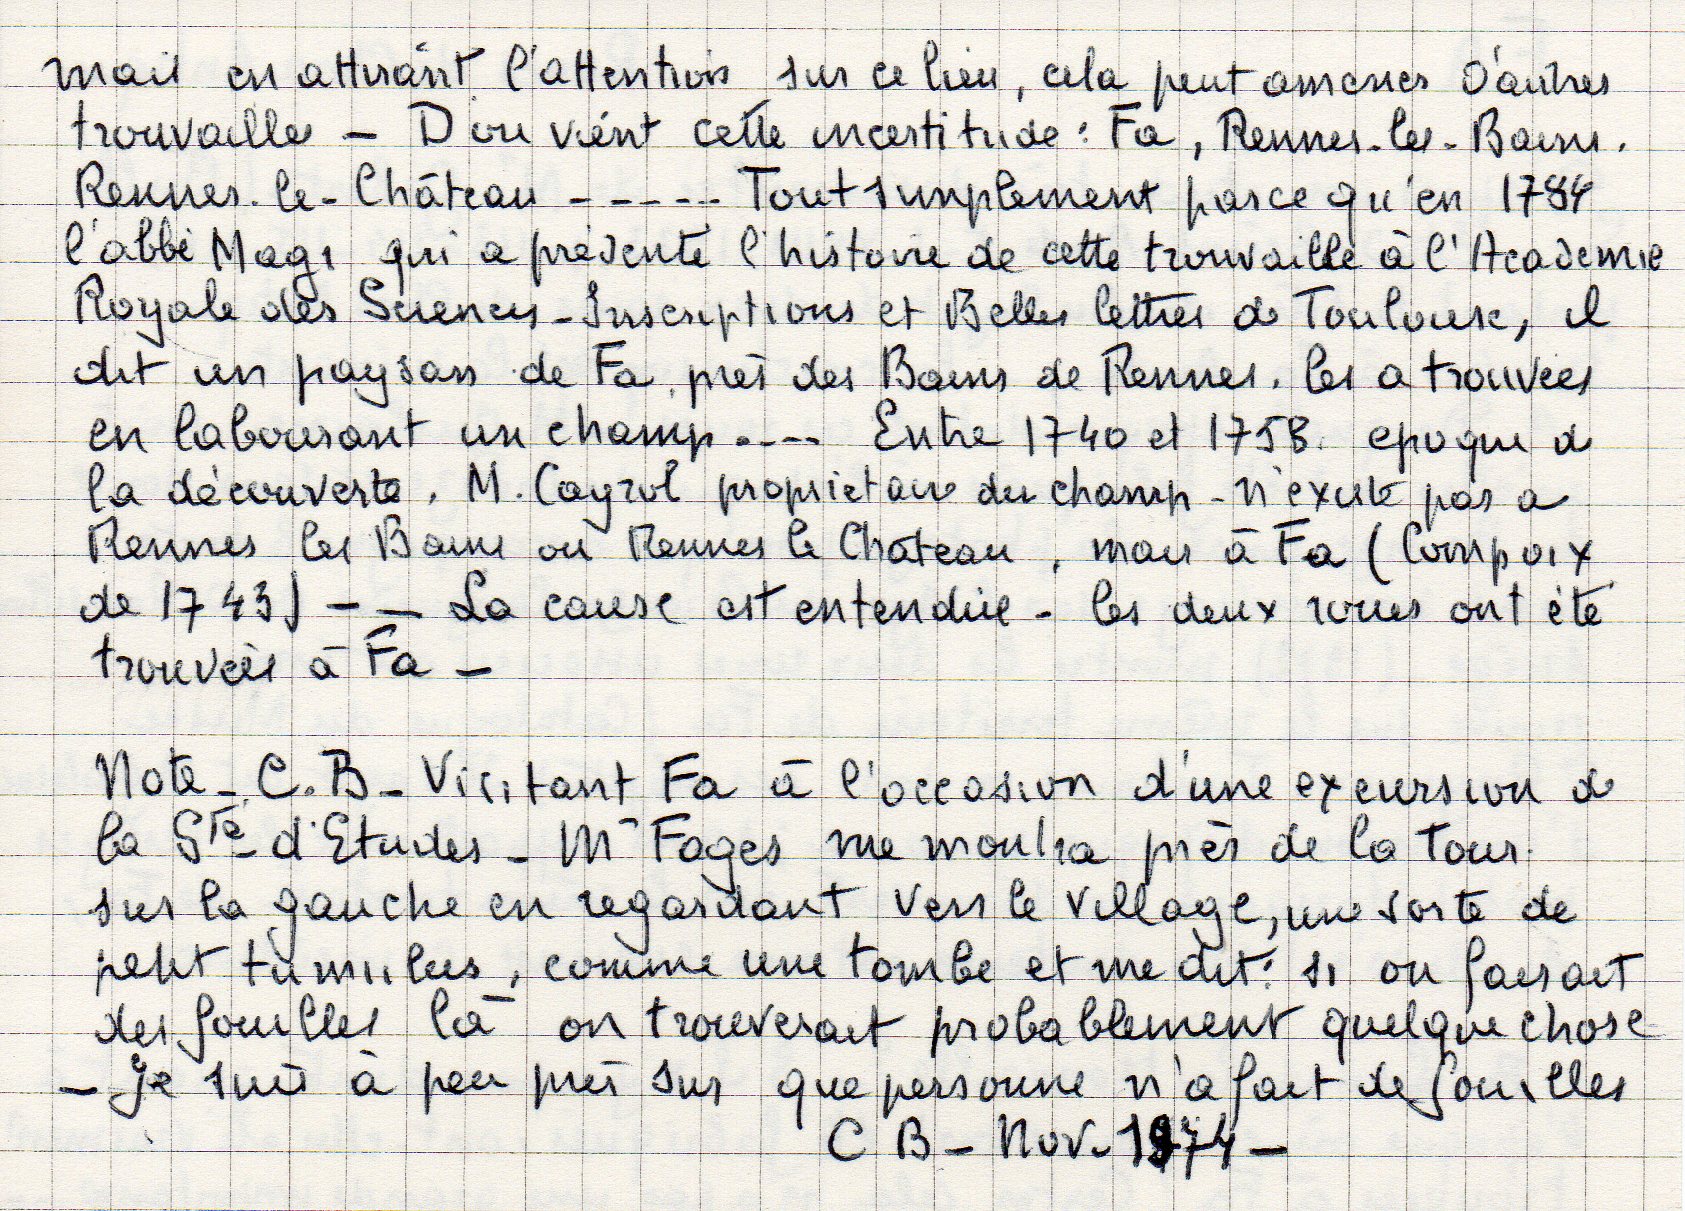 mais en attirant l'attention sur ce lieu, cela peut amener d'autres
trouvailles - D'ou vient cette incertitude : Fa, Rennes-les-Bains.
Rennes-le-Château ----- Tout simplement parce qu'en 1784
l'abbé Magi qui a présenté l'histoire de cette trouvaille à l'Academie
Royale des Sciences-Inscriptions et Belles lettres de Toulouse, il
dit un paysan de Fa, près des Bains de Rennes. les a trouvées
en labourant un champ.--- Entre 1740 et 1758. epoque de
la découverte, M. Cayrol proprietaire du champ - n'existe pas a
Rennes les Bains ou Rennes le Château, mais à Fa (Compoix
de 1743) -- La cause est entendue - les deux roues ont été
trouvées à Fa -
Note - C.B - Visitant Fa à l'occasion d'une excursion de
la Sté d'Etudes - Mr Fages me montra près de la Tour.
sur la gauche en regardant vers le village, une sorte de
petit tumulus, comme une tombe et me dit : si on faisait
des fouilles là on trouverait probablement quelque chose
- Je suis à peu près sur que personne n'a fait de fouilles
C B - Nov. 1974 -